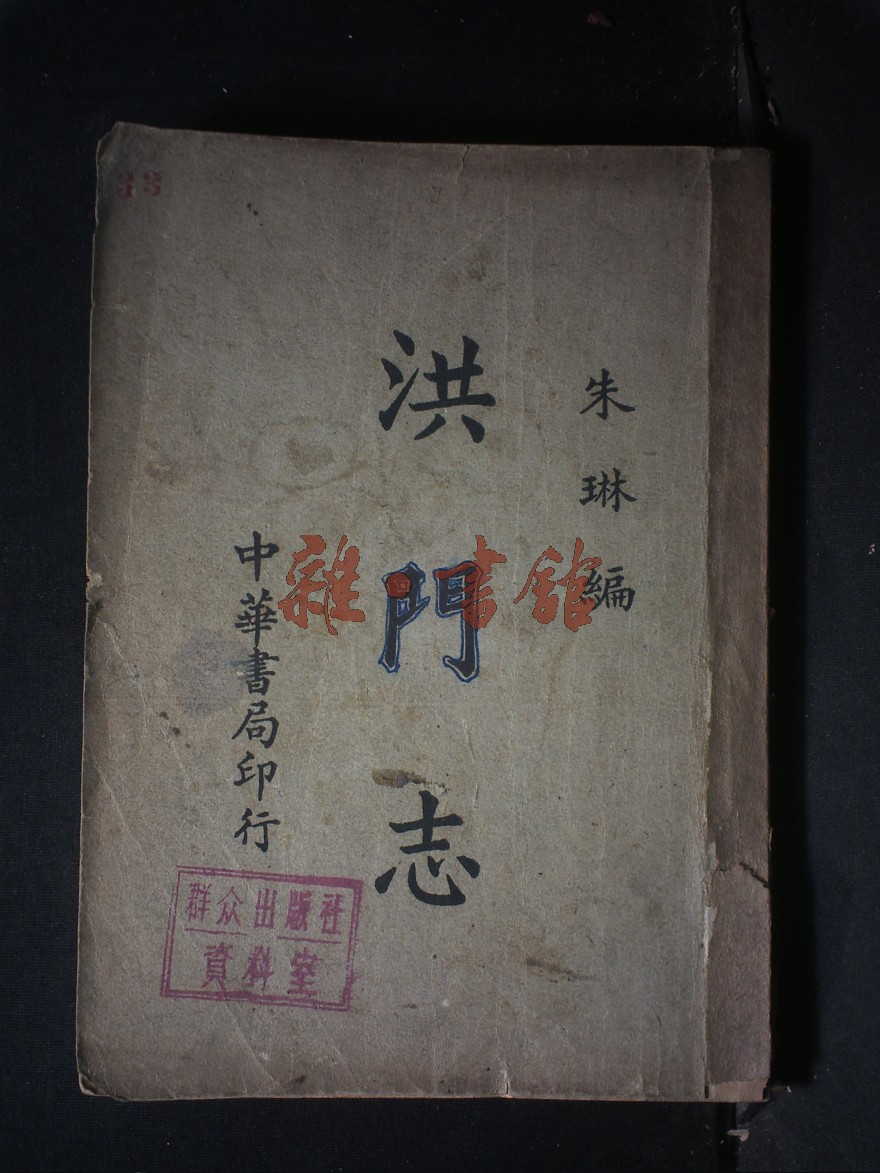 朱琳編
洪門志
中華書局印行
群众出版社
資料室
33
雜·書館